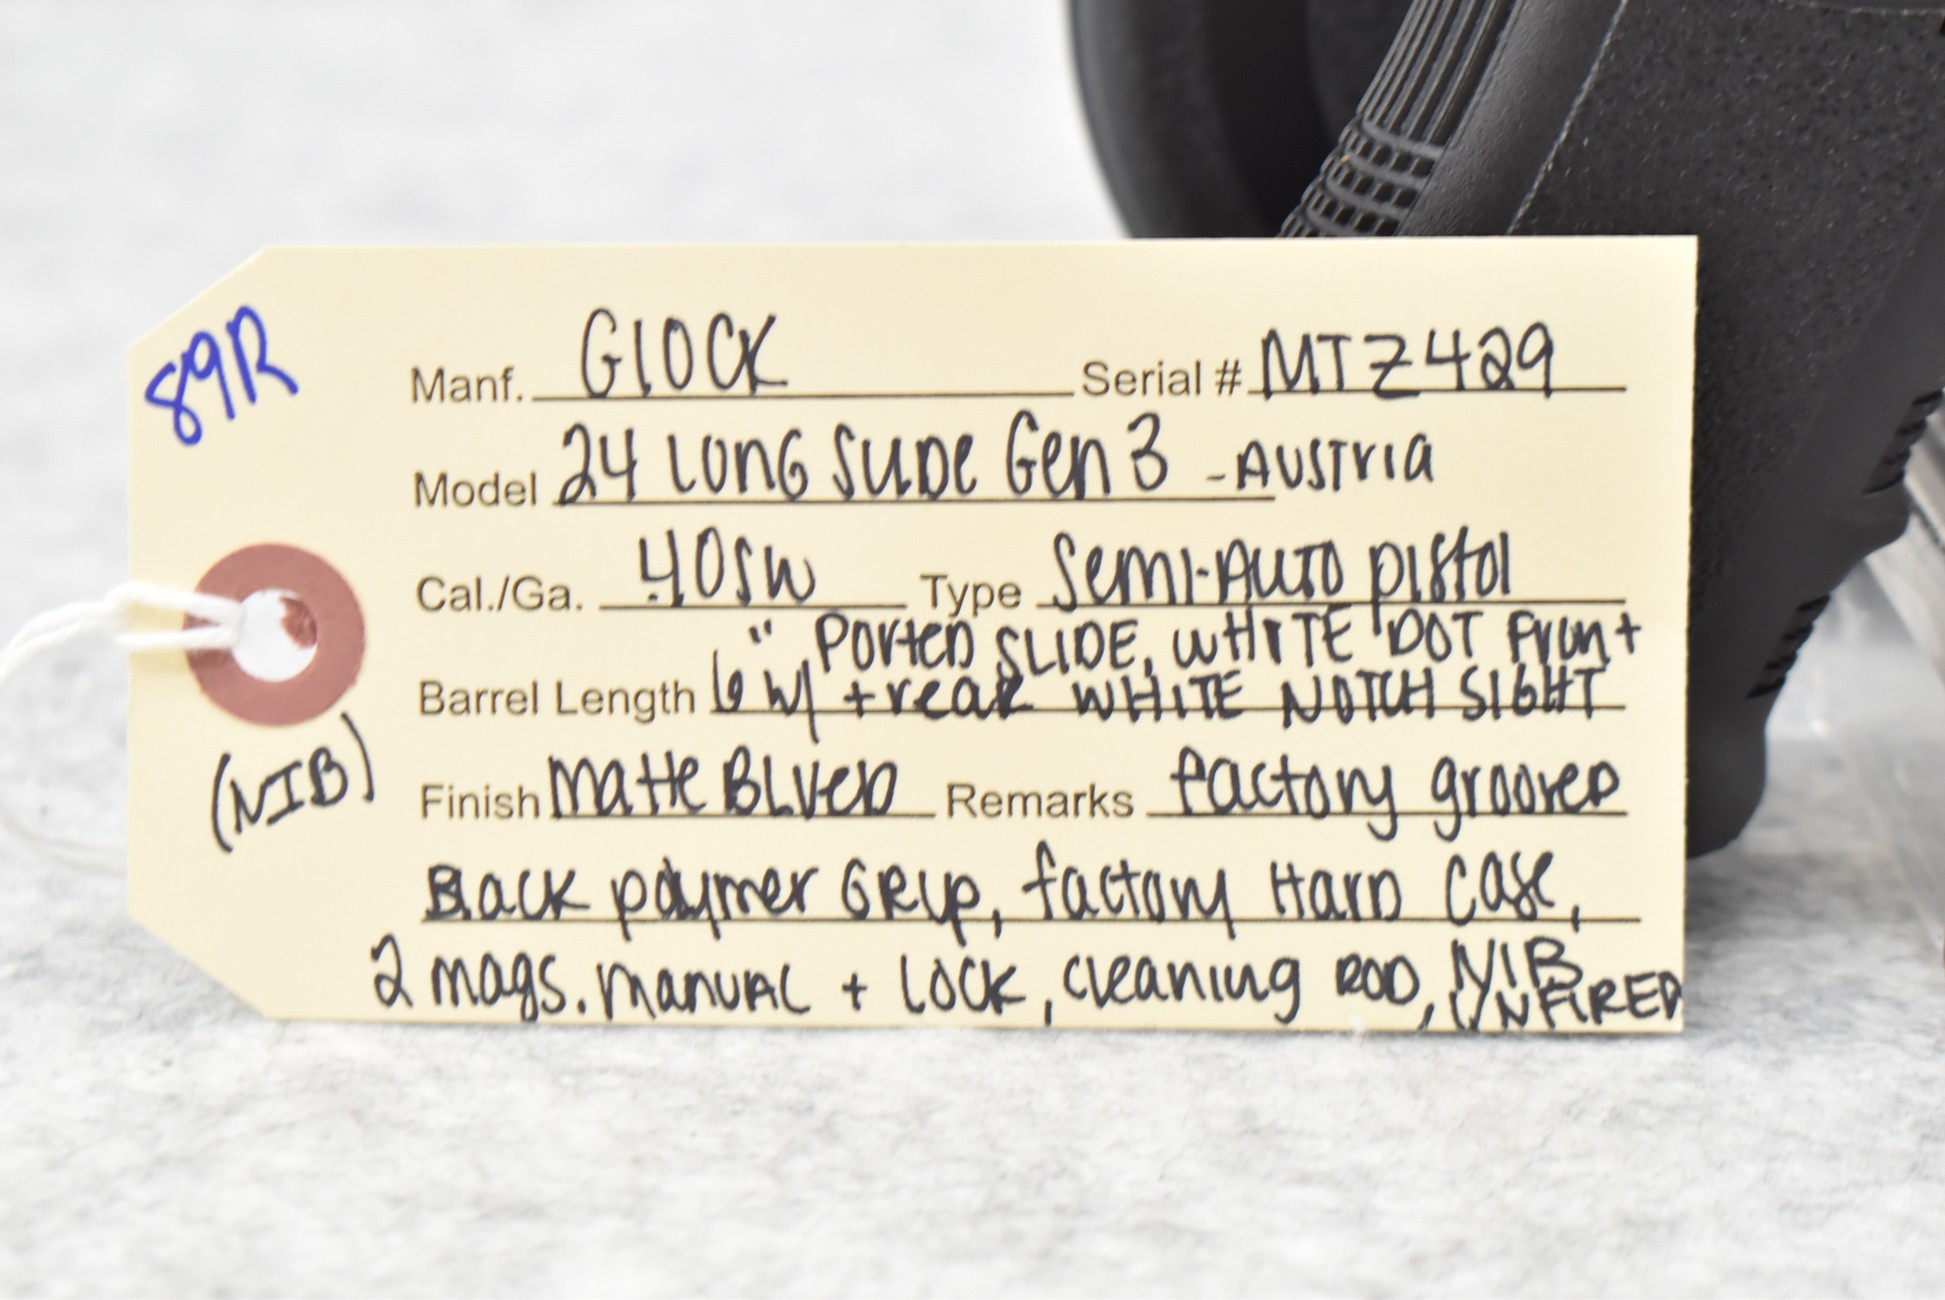 89R
Manf. GlOCK Serial # MTZ429
Model 24 LONG SLIDE Gen 3 - AUSTRIA
Cal./Ga. .40SW Type Semi-Auto Pistol
PORTED SLIDE, WHITE DOT Front
Barrel Length 6" w/ + rear WHITE NOTCH SIGHT
(NIB)
Finish Matte BLUED Remarks factory grooved
Black polymer GRIP, factory HARD CASE,
2 mags. MANUAL + LOCK, cleaning ROD, NIB
UNFIRED